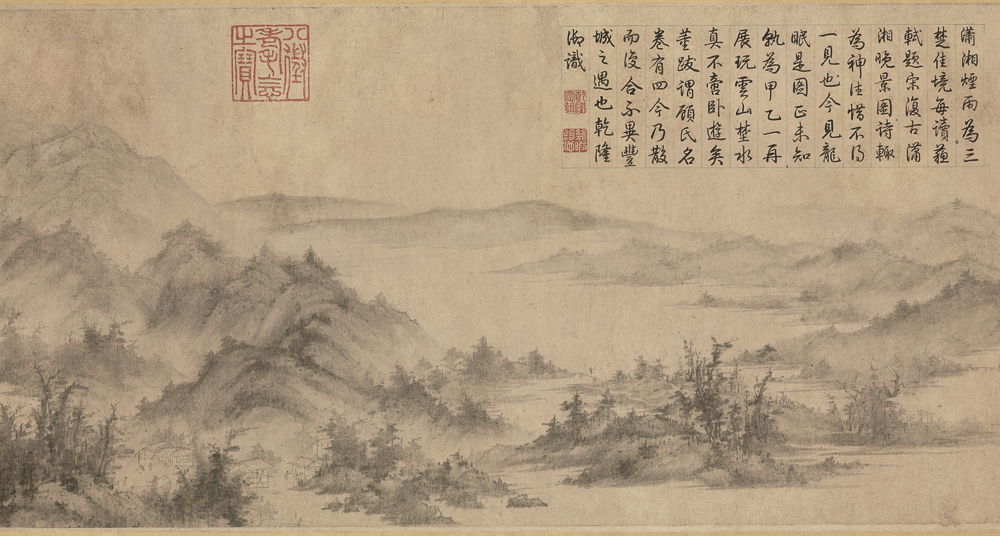 瀟湘煙雨為三
楚佳境每讀蘇
軾題宋復古瀟
湘晚景圖詩輙
為神往惜不得
一見也今見龍
眠是圖正未知
孰為甲乙一再
展玩雲山埜水
真不啻臥遊矣
董跋謂顧氏名
卷有四今乃散
而復合不異豐
城之遇也乾隆
御識
八徵
耄念
之寶